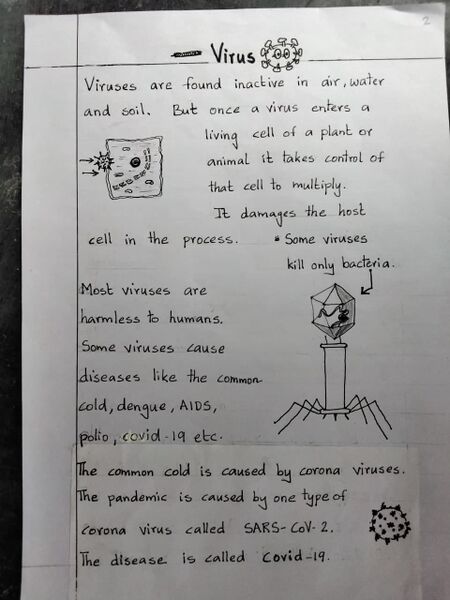 2
Virus
Viruses are found inactive in air, water
and soil. But once a virus enters a
living cell of a plant or
animal it takes control of
that cell to multiply.
It damages the host
cell in the process.
• Some viruses
kill only bacteria.
Most viruses are
harmless to humans.
Some viruses cause
diseases like the common
cold, dengue, AIDS,
polio, covid-19 etc.
The common cold is caused by corona viruses.
The pandemic is caused by one type of
corona virus called SARS-CoV-2.
The disease is called Covid-19.